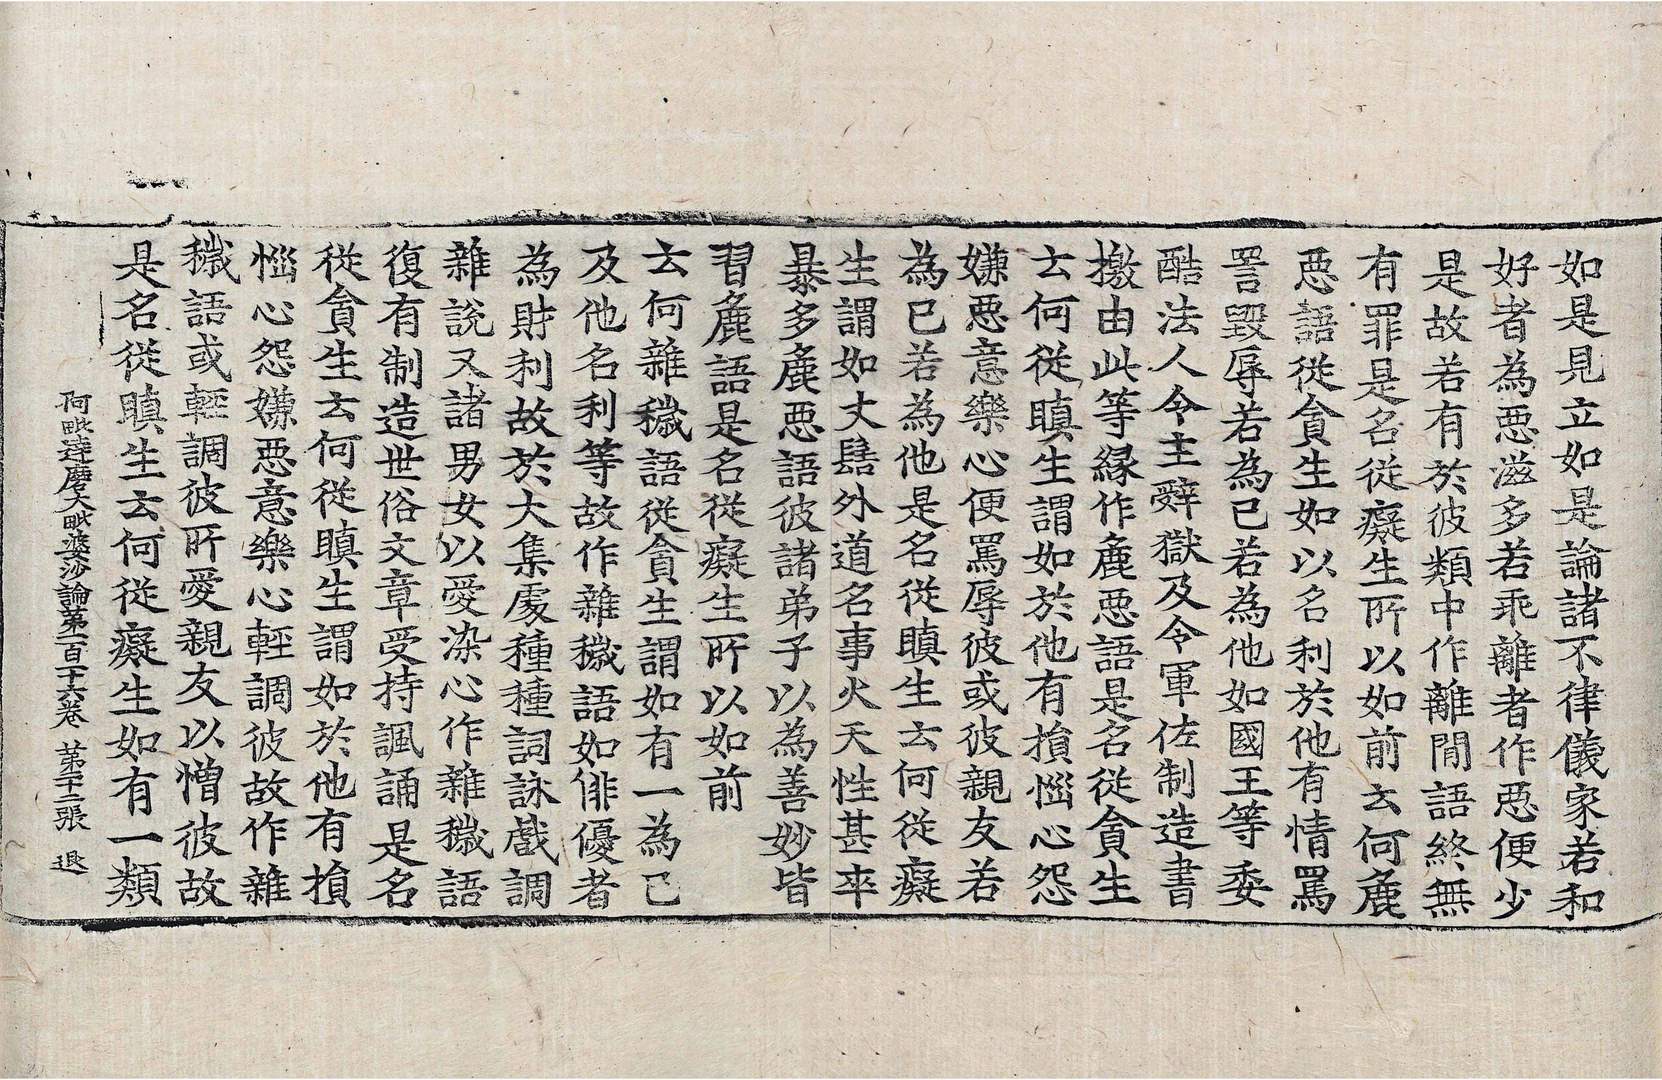 如是見立如是論諸不律儀家若和
好者為惡滋多若乖離者作惡便少
是故若有於彼類中作離間語終無
有罪是名從癡生所以如前云何麁
惡語從貪生如以名利於他有情罵
詈毀辱若為已若為他如國王等委
酷法人令主辭獄及令軍佐制造書
檄由此等縁作麁惡語是名從貪生
云何從瞋生謂如於他有損惱心怨
嫌惡意樂心便罵辱彼或彼親友若
為已若為他是名從瞋生云何從癡
生謂如丈髻外道名事火天性甚卒
暴多麁惡語彼諸弟子以為善妙皆
習麁語是名從癡生所以如前
云何雜穢語從貪生謂如有一為己
及他名利等故作雜穢語如俳優者
為財利故於大集處種種詞詠戲調
雜說又諸男女以愛染心作雜穢語
復有制造世俗文章受持諷誦是名
從貪生云何從瞋生謂如於他有損
惱心怨嫌惡意樂心輕調彼故作雜
穢語或輕調彼所愛親友以憎彼故
是名從瞋生云何從癡生如有一類
阿毗達磨大毗婆沙論第一百十六卷 第二十二張 退